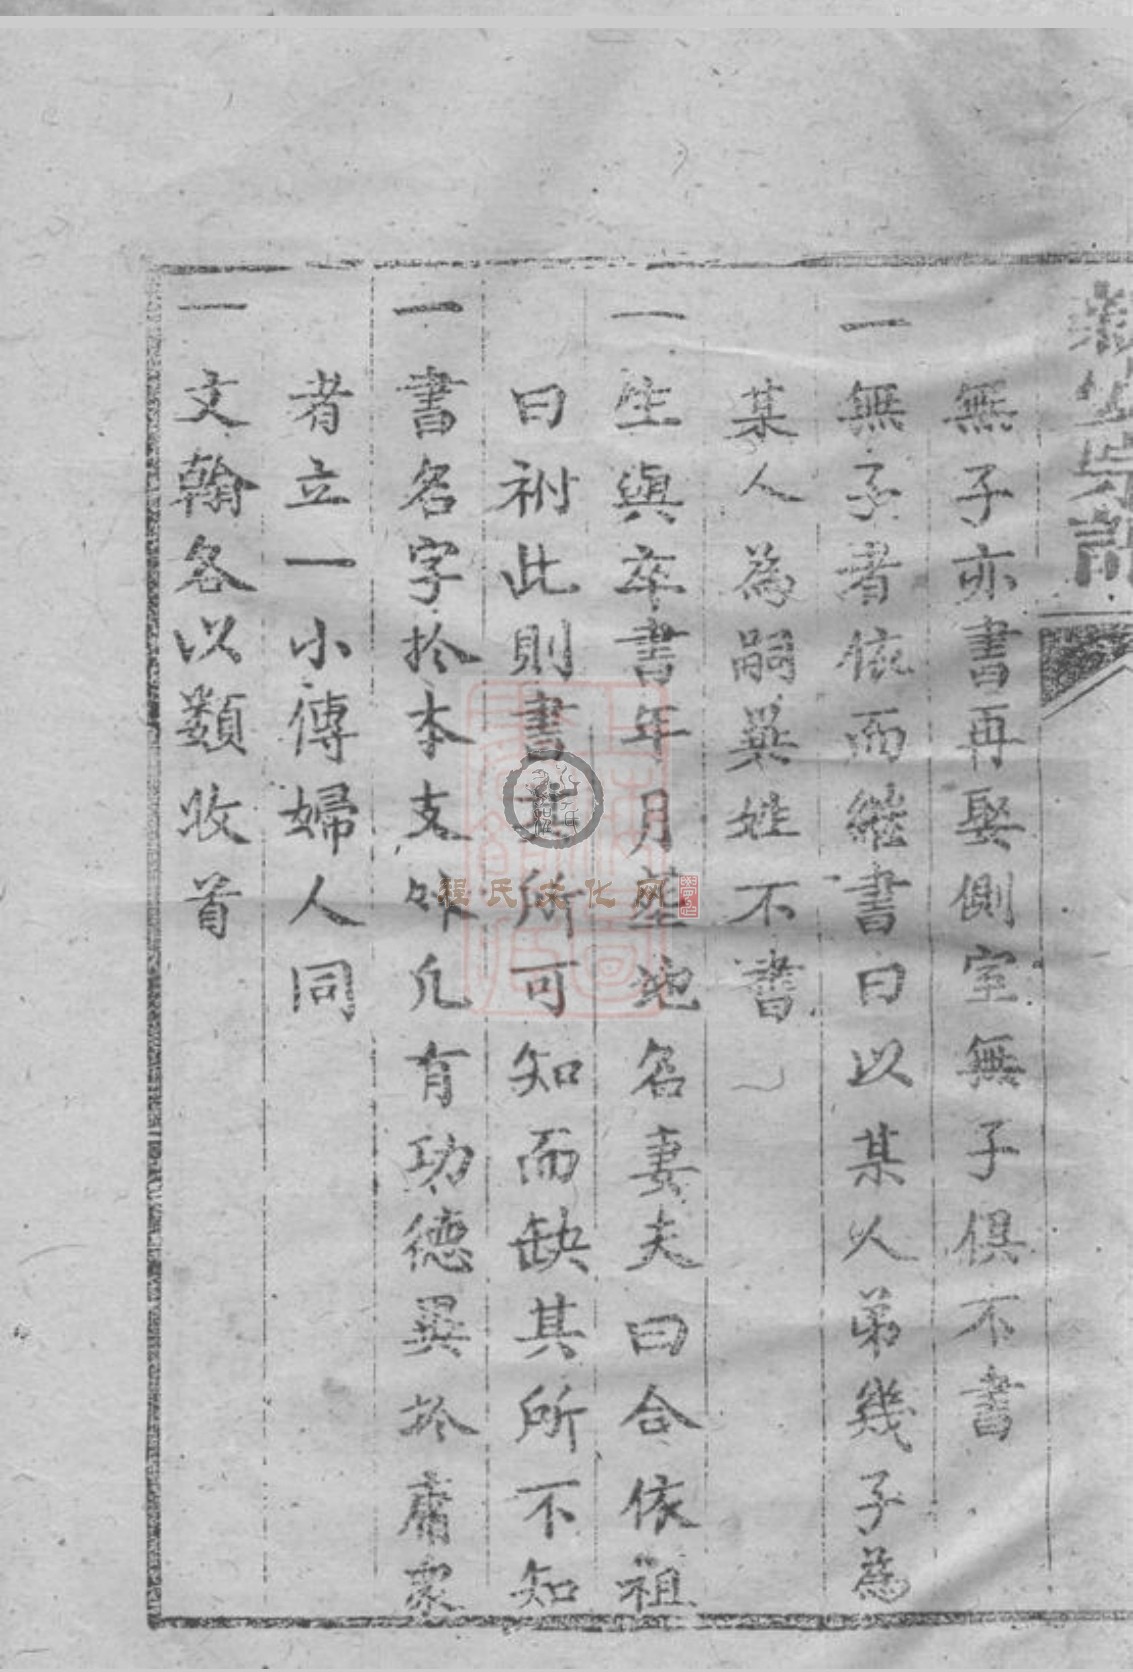 無子亦書再娶側室無子俱不書
一無子者依而繼書曰以某人弟幾子為
某人為嗣異姓不書
一生與卒書年月塟地名妻夫曰合依祖
曰祔此則書其所可知而缺其所不知
一書名字扵本支外凡有功德異扵庸衆
者立一小傳婦人同
一文翰各以類收首
程氏文化网